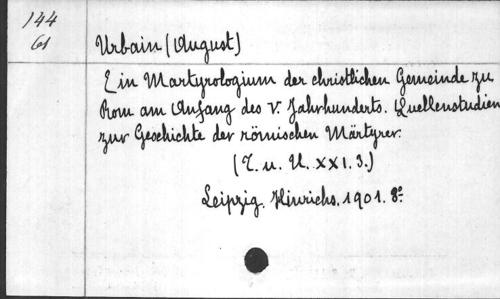 144
61
Urbain (August)
Ein Martyrologium der christlichen Gemeinde zu
Rom am Anfang des V. Jahrhunderts. Quellenstudien
zur Geschichte der römischen Märtyrer.
(T. u. U. XXI. 3.)
Leipzig. Hinrichs. 1901. 8°